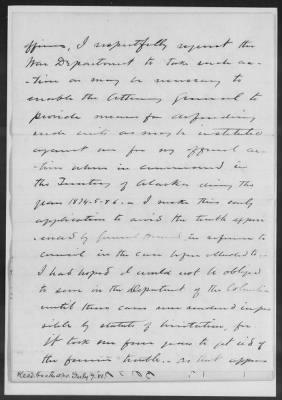 officers, I respectfully request the
War Department to take such ac-
tion as may be necessary to
enable the Attorney General to
provide means for defending
such suits as may be instituted
against me for my official ac-
tion when in command in
the Territory of Alaska during the
years 1874-5-&6. - I make this early
application to avoid the trouble exper-
ienced by General in reference to
council in the case before alluded to. -
I had hoped I would not be obliged
to serve in the Department of the Columbia
until these cases were rendered impos-
sible by statute of limitation, for
it took me four years to get rid of
the former trouble. - as that